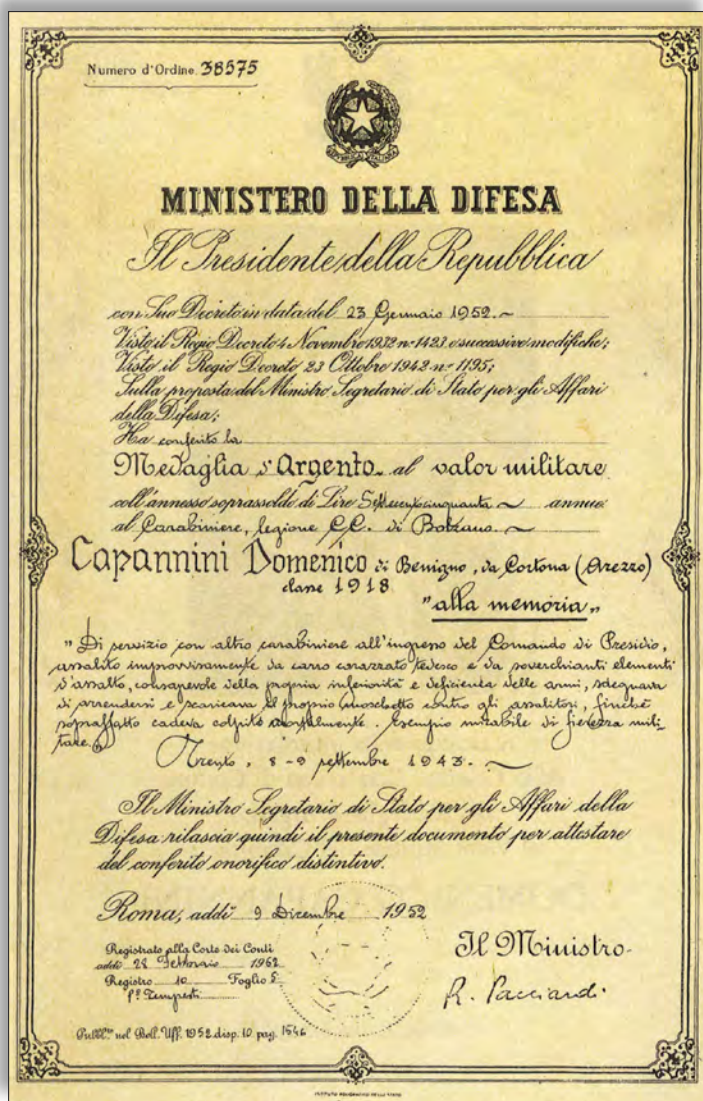 Numero d'Ordine 38575
REPVBBLICA ITALIANA
MINISTERO DELLA DIFESA
Il Presidente della Repubblica
con Suo Decreto in data del 23 Gennaio 1952.~
Visto il Regio Decreto 4 Novembre 1932 n. 1423 e successive modifiche;
Visto il Regio Decreto 23 Ottobre 1942 n. 1195;
Sulla proposta del Ministro Segretario di Stato per gli Affari
della Difesa;
Ha conferito la
Medaglia d'Argento al valor militare
coll'annesso soprassoldo di Lire Settecentocinquanta ~ annue
al Carabiniere, legione CC. di Bolzano ~
Capannini Domenico di Benigno, da Cortona (Arezzo)
classe 1918
"alla memoria"
"Di servizio con altro carabiniere all'ingresso del Comando di Presidio,
assalito improvvisamente da carro corazzato tedesco e da soverchianti elementi
d'assalto, consapevole della propria inferiorità e deficienza delle armi, sdegnava
di arrendersi e scaricava il proprio moschetto contro gli assalitori, finché
sopraffatto cadeva colpito mortalmente. Esempio mirabile di fierezza mili-
tare"
Trento, 8-9 settembre 1943. ~
Il Ministro Segretario di Stato per gli Affari della
Difesa rilascia quindi il presente documento per attestare
del conferito onorifico distintivo.
Roma, addì 9 Dicembre 1952
Registrato alla Corte dei Conti
addì 28 Febbraio 1952
Registro 10 Foglio 5
Il Ministro
fº Tempesti
R. Pacciardi
Pubbl.to nel Boll. Uff. 1952 disp. 10 pag. 1546
ISTITUTO POLIGRAFICO DELLO STATO